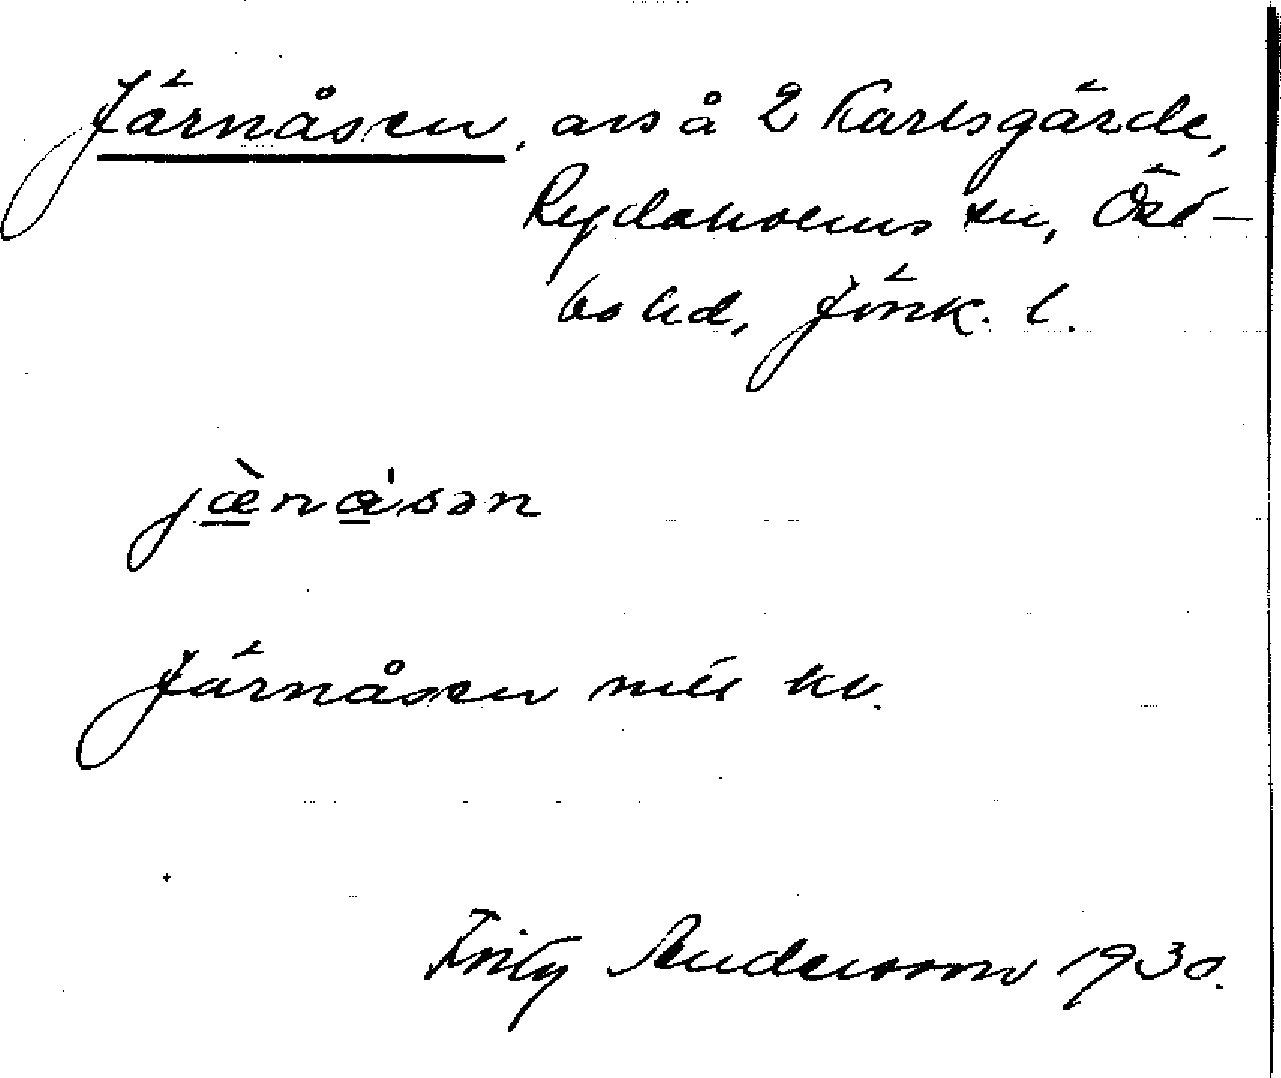 Järnåsen, avs å 2 Karlsgärde,
Rydaholms sn, Öst-
bo hd, Jönk. l.
jæ̀nɑ́sən
Järnåsen mtl kv.
Fritz Andersson 1930.